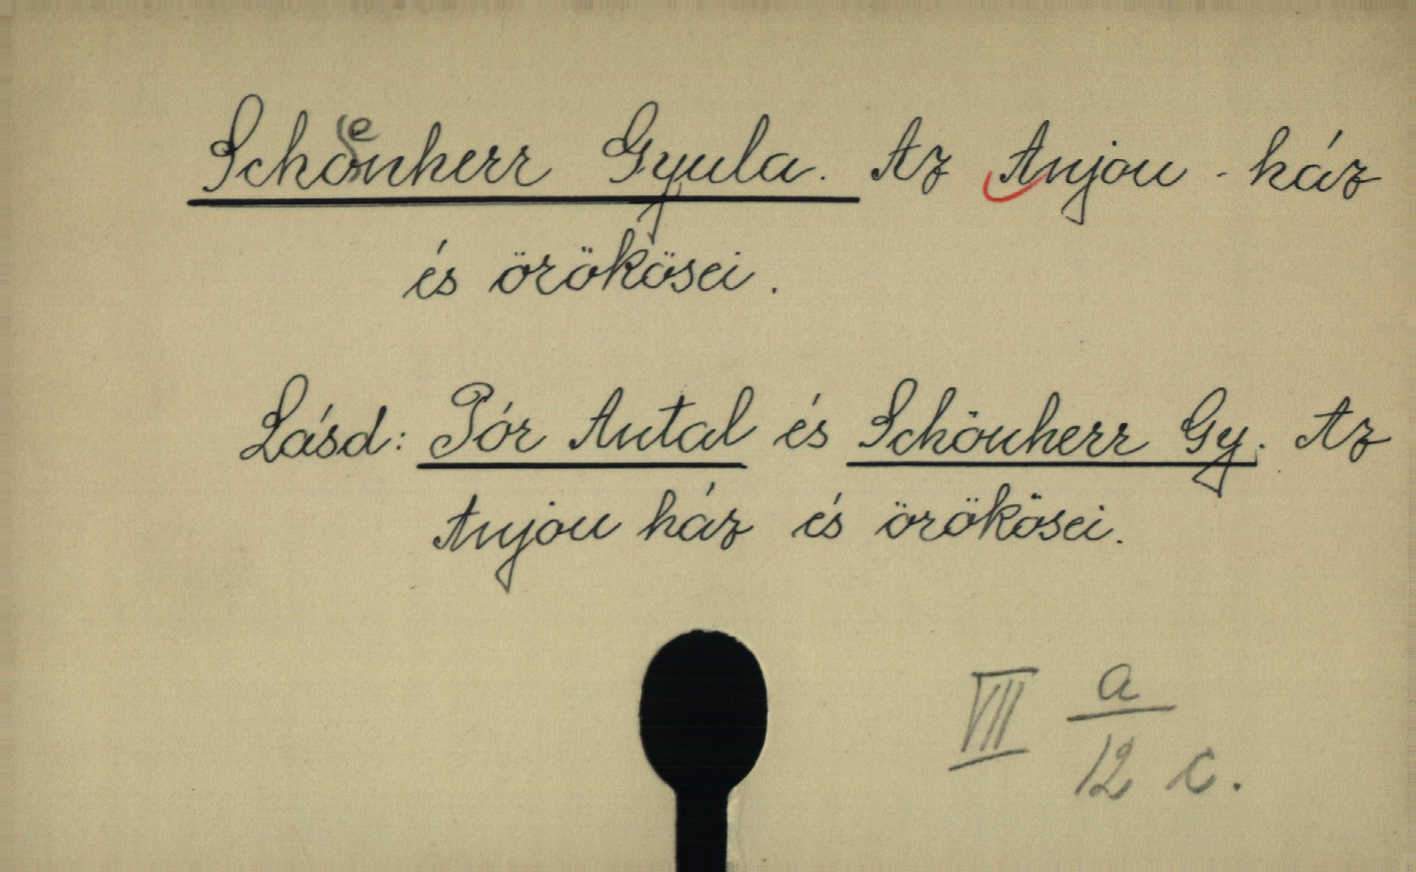 Schoenherr Gyula. Az Anjou - ház
és örökösei.
Lásd: Pór Antal és Schönherr Gy. Az
Anjou ház és örökösei.
VII a
12 c.